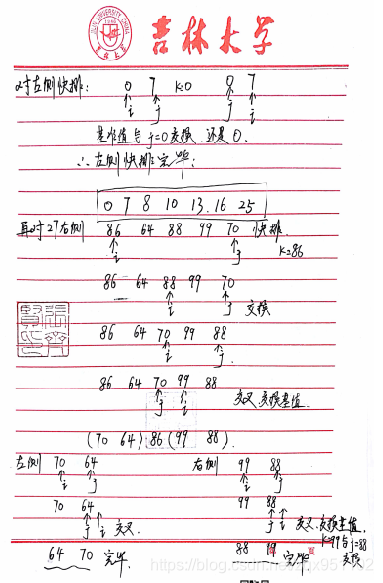 吉林大学
JILIN UNIVERSITY CHINA
1946
对左侧快排: 0 7 k=0 0 7
i j j i
基准值与j=0交换 还是0.
∴左侧快排完毕:
0 7 8 10 13. 16 25
再对27右侧 86 64 88 99 70 快排.
i j k=86
86 64 88 99 70
i j 交换
86 64 70 99 88
i j
86 64 70 99 88
j i 交叉.交换基值.
(70 64) 86 (99 88).
左侧 70 64 右侧 99 88
i j i j
70 64 99 88
j i 交叉 j i 交叉.交换基值.
k=99与j=88
交换
64 70 完毕 88 99 完毕